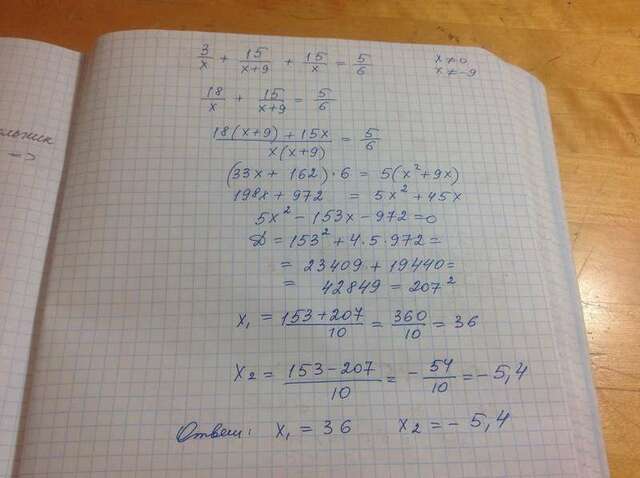 3/x + 15/(x+9) + 15/x = 5/6    x≠0
x≠-9
18/x + 15/(x+9) = 5/6
(18(x+9)+15x)/(x(x+9)) = 5/6
(33x + 162)·6 = 5(x²+9x)
198x + 972 = 5x² + 45x
5x² - 153x - 972 = 0
D = 153² + 4·5·972 =
= 23409 + 19440 =
= 42849 = 207²
x₁ = (153+207)/10 = 360/10 = 36
x₂ = (153-207)/10 = -54/10 = -5,4
Ответ: x₁ = 36    x₂ = -5,4